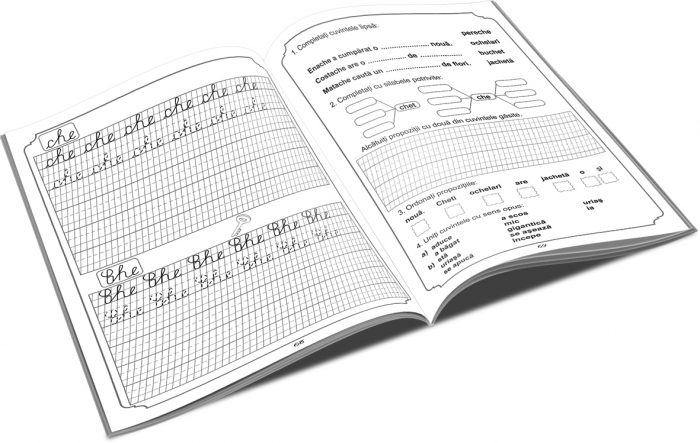 che
che che che che che che
che che che che che che
Che
Che Che Che Che Che Che
Che Che Che Che Che Che
68
1. Completați cuvintele lipsă:
Enache a cumpărat o .................... nouă. pereche
Costache are o .............. de .................. ochelari
Matache caută un .................... de flori. buchet
jachetă
2. Completați cu silabele potrivite:
chet che
Alcătuiți propoziții cu două din cuvintele găsite.
3. Ordonați propozițiile:
nouă. Cheti ochelari are jachetă o și
4. Uniți cuvintele cu sens opus:
a) aduce a scos uriaș
a băgat mic ia
b) stă gigantică
uriașă se așează
se apucă începe
69